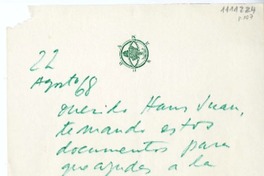 1111224
22
Agosto 68
Querido Hans Juan,
te mando estos
documentos para
que ayudes a la